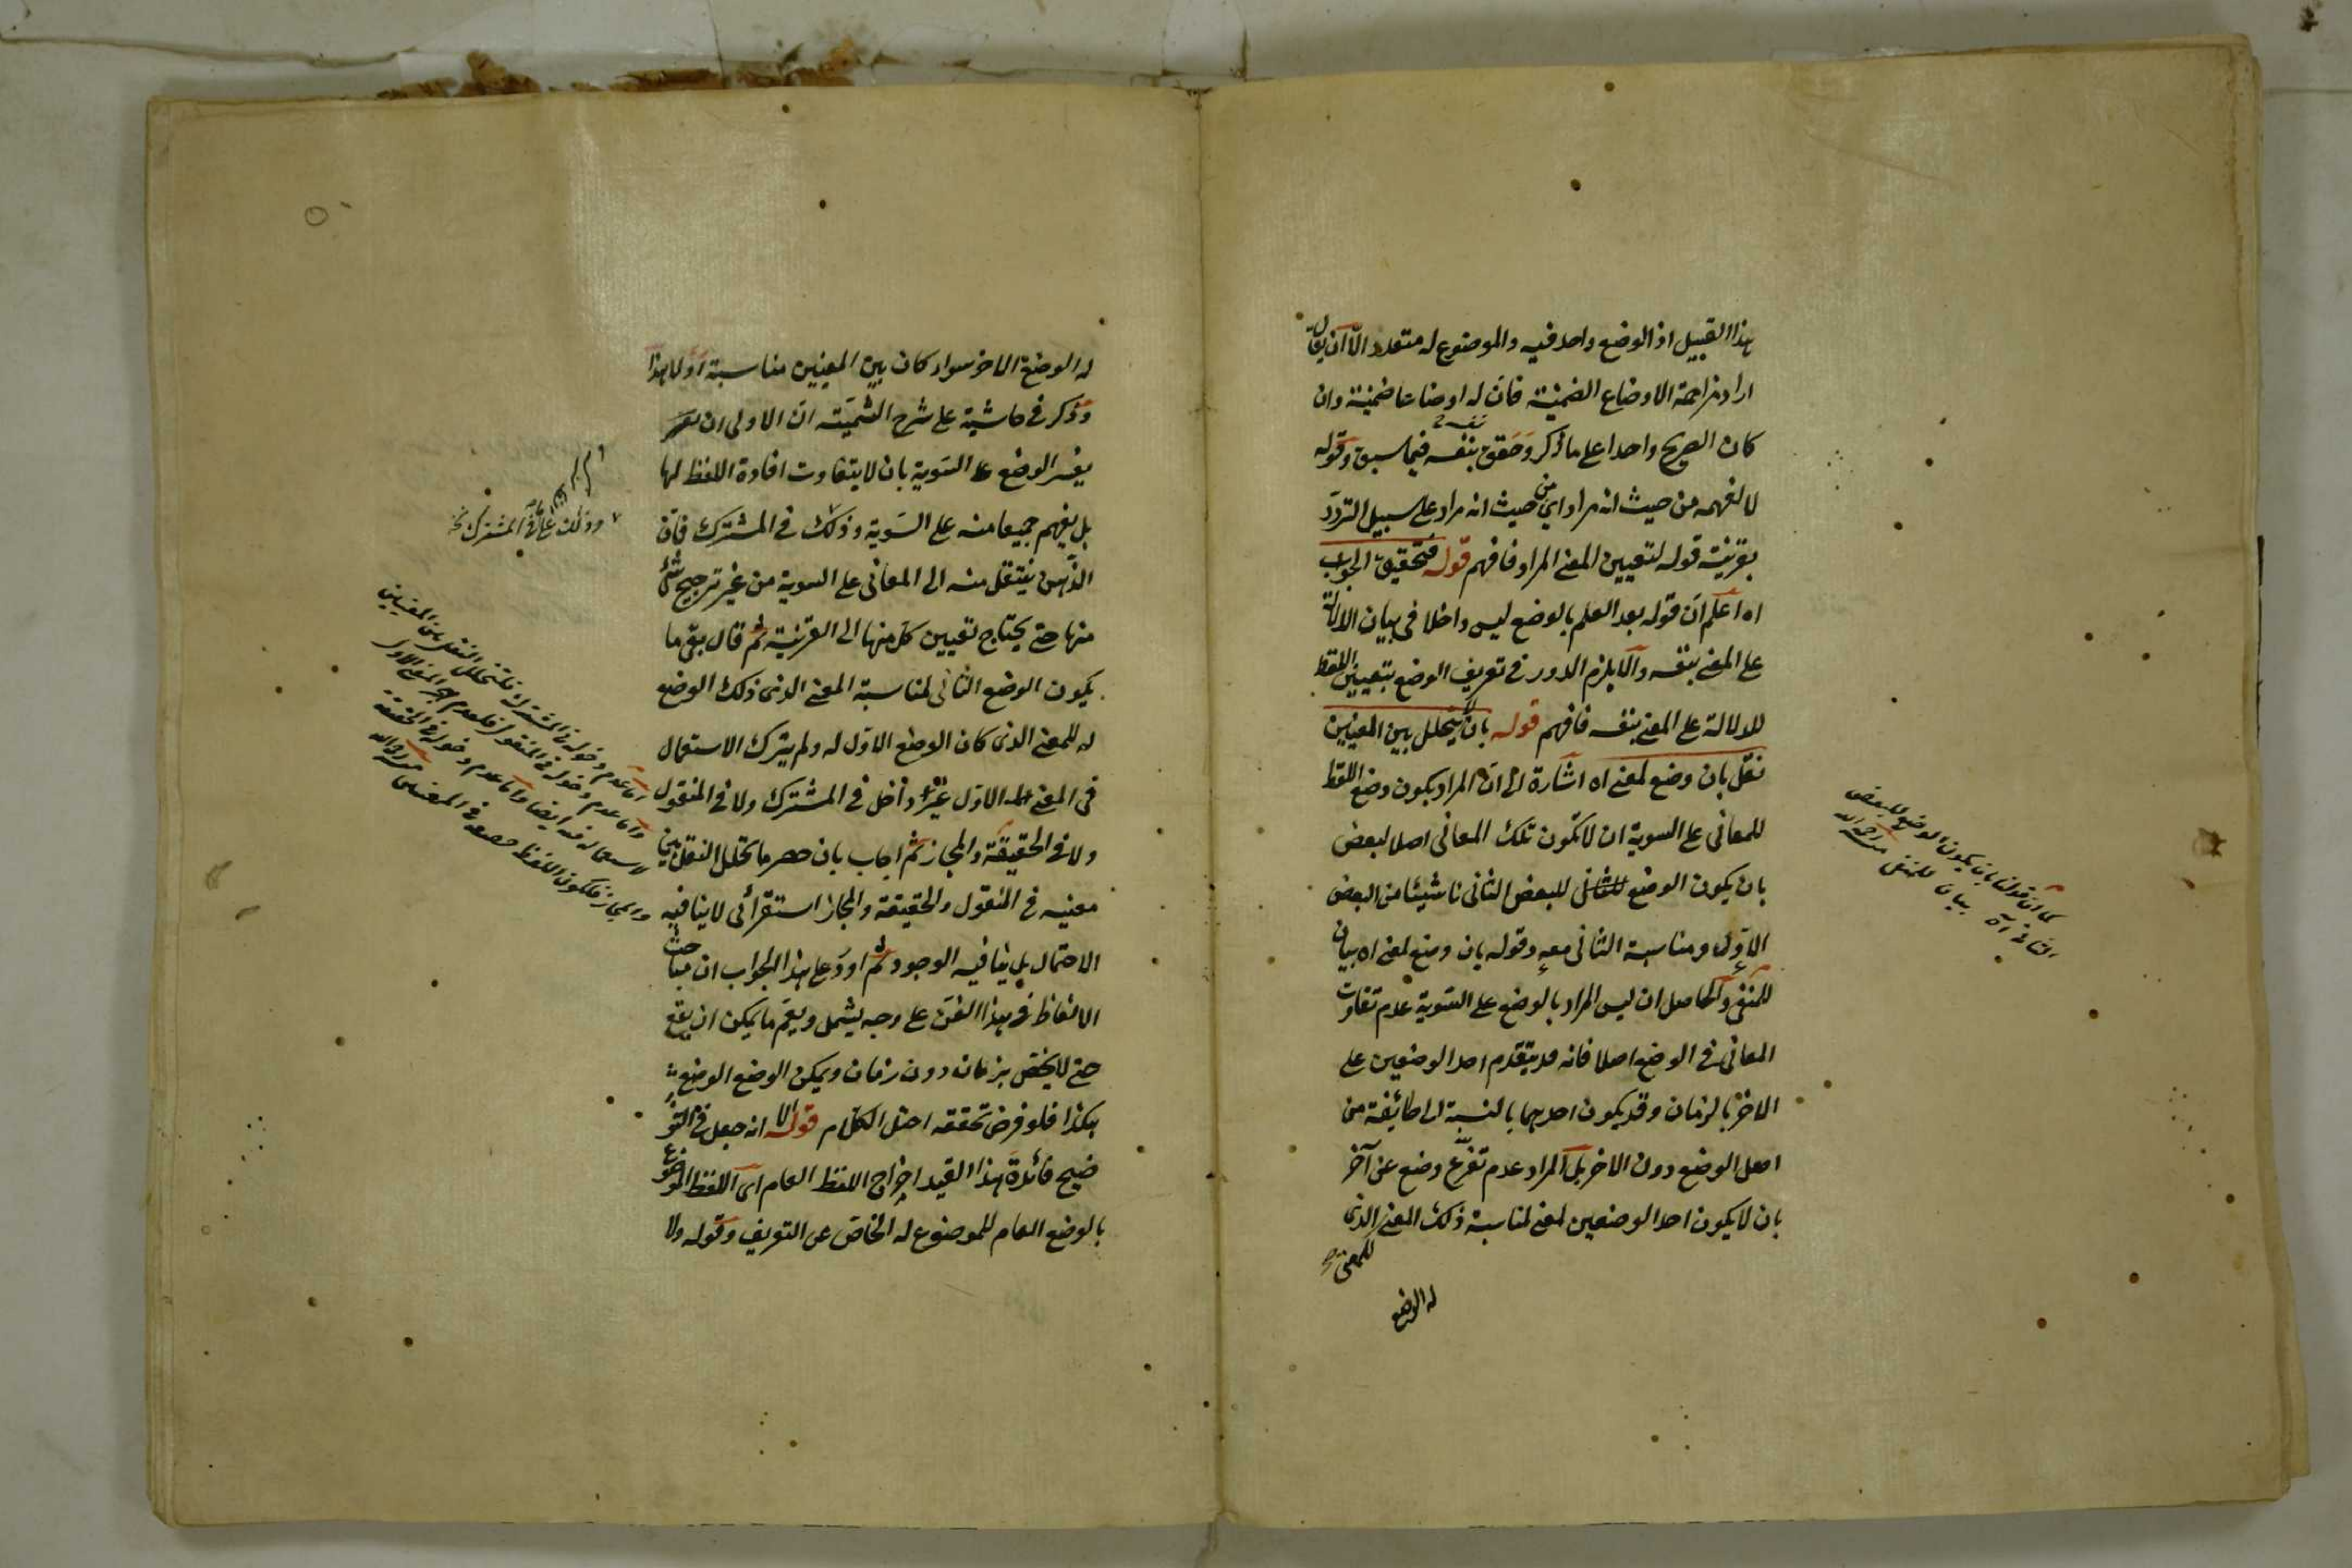 هذا القبيل اذ الوضع واحد فيه والموضوع له متعدد الّا ان يقال
اراد مزاحمة الاوضاع الضمنية فانّ له اوضاعا ضمنية وان
كان الصريح واحدا على ما ذكر وحقق بنفسه فيما سبق وقوله
لا لفهمه من حيث انه مراد اي من حيث انه مراد على سبيل التردّد
بقرينة قوله لتعيين المعنى المراد فافهم قوله فتحقيق الجواب
اه اعلم انّ قوله بعد العلم بالوضع ليس داخلا في بيان الدلالة
على المعنى بنفسه والّا يلزم الدور في تعريف الوضع بتعيين اللفظ
للدلالة على المعنى بنفسه فافهم قوله بان لا يتخلل بين المعنيين
نقل بان وضع لمعنى اه اشارة الى انّ المراد بكون وضع اللفظ
للمعاني على السوية ان لا تكون تلك المعاني اصلا لبعض
بان يكون الوضع للبعض الثاني ناشيئا من البعض
الاوّل ومناسبة الثاني معه وقوله بان وضع لمعنى اه بيان
للمنفي والحاصل ان ليس المراد بالوضع على السّوية عدم تفاوت
المعاني في الوضع اصلا فانه قد يتقدم احد الوضعين على
الاخر بالزمان وقد يكون احديهما بالنسبة الى طائفة من
اهل الوضع دون الاخر بل المراد عدم تفرّع وضع عن آخر
بان لا يكون احد الوضعين لمعنى لمناسبة ذلك المعنى الذي
للمعنى
له الوضع
كما ان قولنا بان يكون الوضع للبعض
الثاني اه بيان للمنفي منه رحمه الله
له الوضع الاخر سواء كان بين المعنيين مناسبة او لا هذا
وذكر في حاشية على شرح الشمسية انّ الاولى ان
يفسر الوضع على السّوية بان لا يتفاوت افادة اللفظ لها
بل يفهم جميعا منه على السّوية وذلك في المشترك فانّ
الذّهن ينتقل منه الى المعاني على السوية من غير ترجيح شئ
منها حتى يحتاج تعيين كل منها الى القرينة ثم قال بقي ما
يكون الوضع الثاني لمناسبة المعنى الذي ذلك الوضع
له للمعنى الذي كان الوضع الاوّل له ولم يترك الاستعمال
في المعنى الاوّل غير داخل في المشترك ولا في المنقول
ولا في الحقيقة والمجاز ثم اجاب بان حصر ما تخلل النقل بين
معنييه في المنقول والحقيقة والمجاز استقرائي لا ينافيه
الاحتمال بل ينافيه الوجود ثم اورد على هذا الجواب ان مباحث
الالفاظ في هذا الفنّ على وجه يشمل ويعمّ ما يمكن ان يقع
حتى لا يختص بزمان دون زمان ويمكن الوضع
هكذا فلو فرض تحققه اختل الكلام قوله الا انه جعل في التو
ضيح فائدة هذا القيد اخراج اللفظ العام اى اللفظ الموضوع
بالوضع العام للموضوع له الخاصّ عن التعريف وقوله ولا
وذلك المشترك
اما عدم دخوله في المشترك فلتخلل النقل بين المعنيين
واما عدم دخوله في المنقول فلعدم هجر المعنى الاول
لاستعماله فيه ايضا واما عدم دخوله في الحقيقة
والمجاز فلكون اللفظ في المعنيين منه رحمه الله